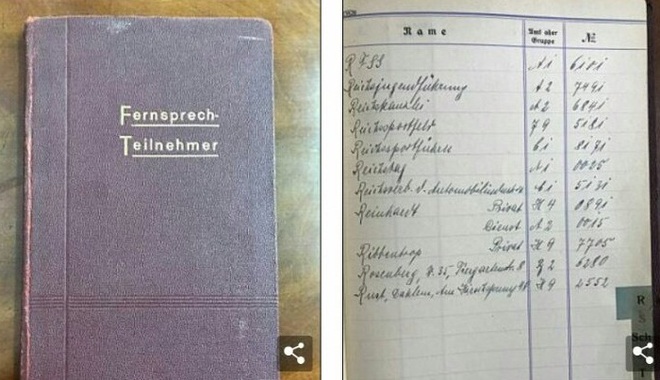 Fernsprech-
Teilnehmer
Name Amt oder Gruppe №
R F SS A 1 6101
Reichsjugendführung A 2 7491
Reichskanzlei A 2 6841
Reichssportfeld J 9 5181
Reichssportführer C 1 8171
Reichstag A 1 0025
Reichsverb. d. Automobilindustrie 5131
Reinhardt Privat H 4 0891
Dienst A 2 0015
Ribbentrop Privat H 9 7705
Rosenberg, W. 35, Tiergartenstr. 8 6280
Rust, Dahlem, H 9 2552
R
S
Sch
T